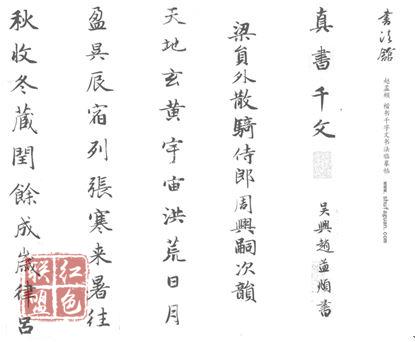 書法館
赵孟頫 楷书千字文书法临摹帖 www.shufaguan.com
真書千文
吴興趙孟頫書
梁員外散騎侍郎周興嗣次韻
天地玄黄宇宙洪荒日月
盈昃辰宿列張寒来暑往
秋收冬蔵閏餘成歲律吕
红色
联盟